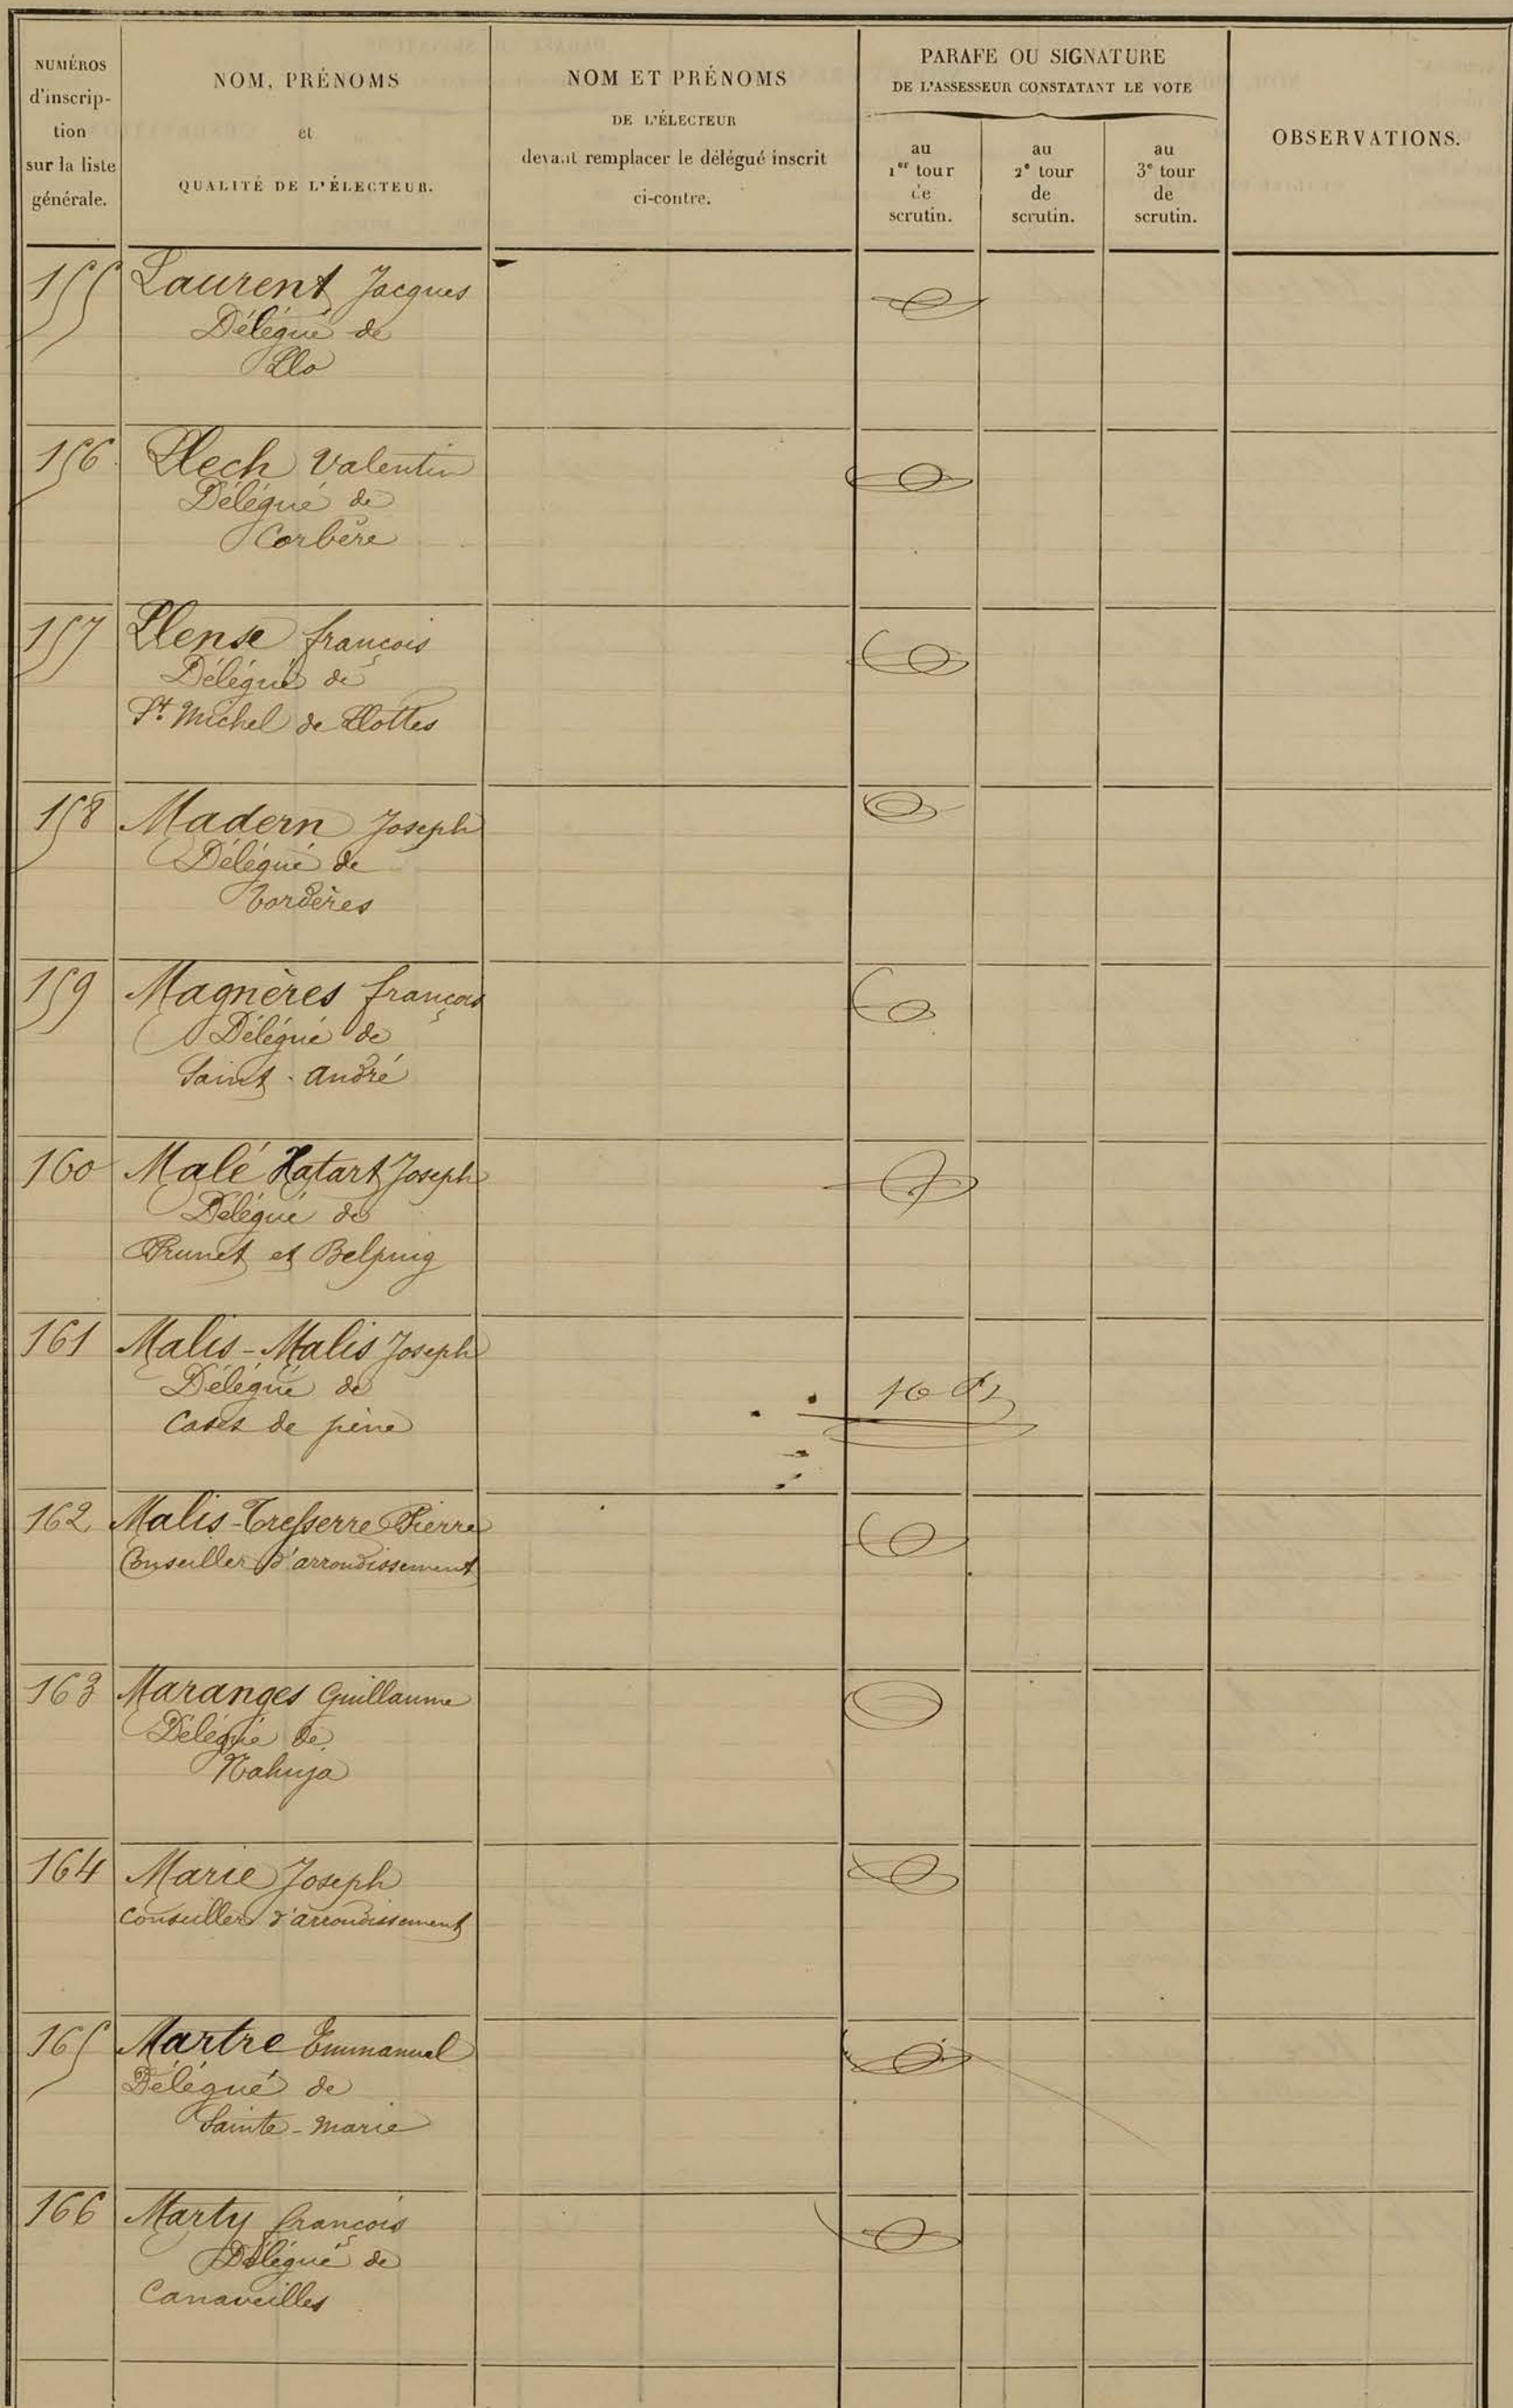 NUMÉROS
d'inscrip-
tion
sur la liste
générale.
NOM, PRÉNOMS
et
QUALITÉ DE L'ÉLECTEUR.
NOM ET PRÉNOMS
DE L'ÉLECTEUR
devant remplacer le délégué inscrit
ci-contre.
PARAFE OU SIGNATURE
DE L'ASSESSEUR CONSTATANT LE VOTE
au
1er tour
de
scrutin.
au
2e tour
de
scrutin.
au
3e tour
de
scrutin.
OBSERVATIONS.
155 Laurent Jacques
Délégué de
Llo
156 Llech Valentin
Délégué de
Corbère
157 Llense françois
Délégué de
St Michel de Llottes
158 Madern Joseph
Délégué de
Tordères
159 Magnères françois
Délégué de
Saint-André
160 Malé Hatart Joseph
Délégué de
Prunet et Belpuig
161 Malis-Malis Joseph
Délégué de
Cases de pène
162 Malis-Tresserre Pierre
Conseiller d'arrondissement
163 Maranges Guillaume
Délégué de
Nahuja
164 Marie Joseph
Conseiller d'arrondissement
165 Martre Emmanuel
Délégué de
Sainte-Marie
166 Marty françois
Délégué de
Canaveilles